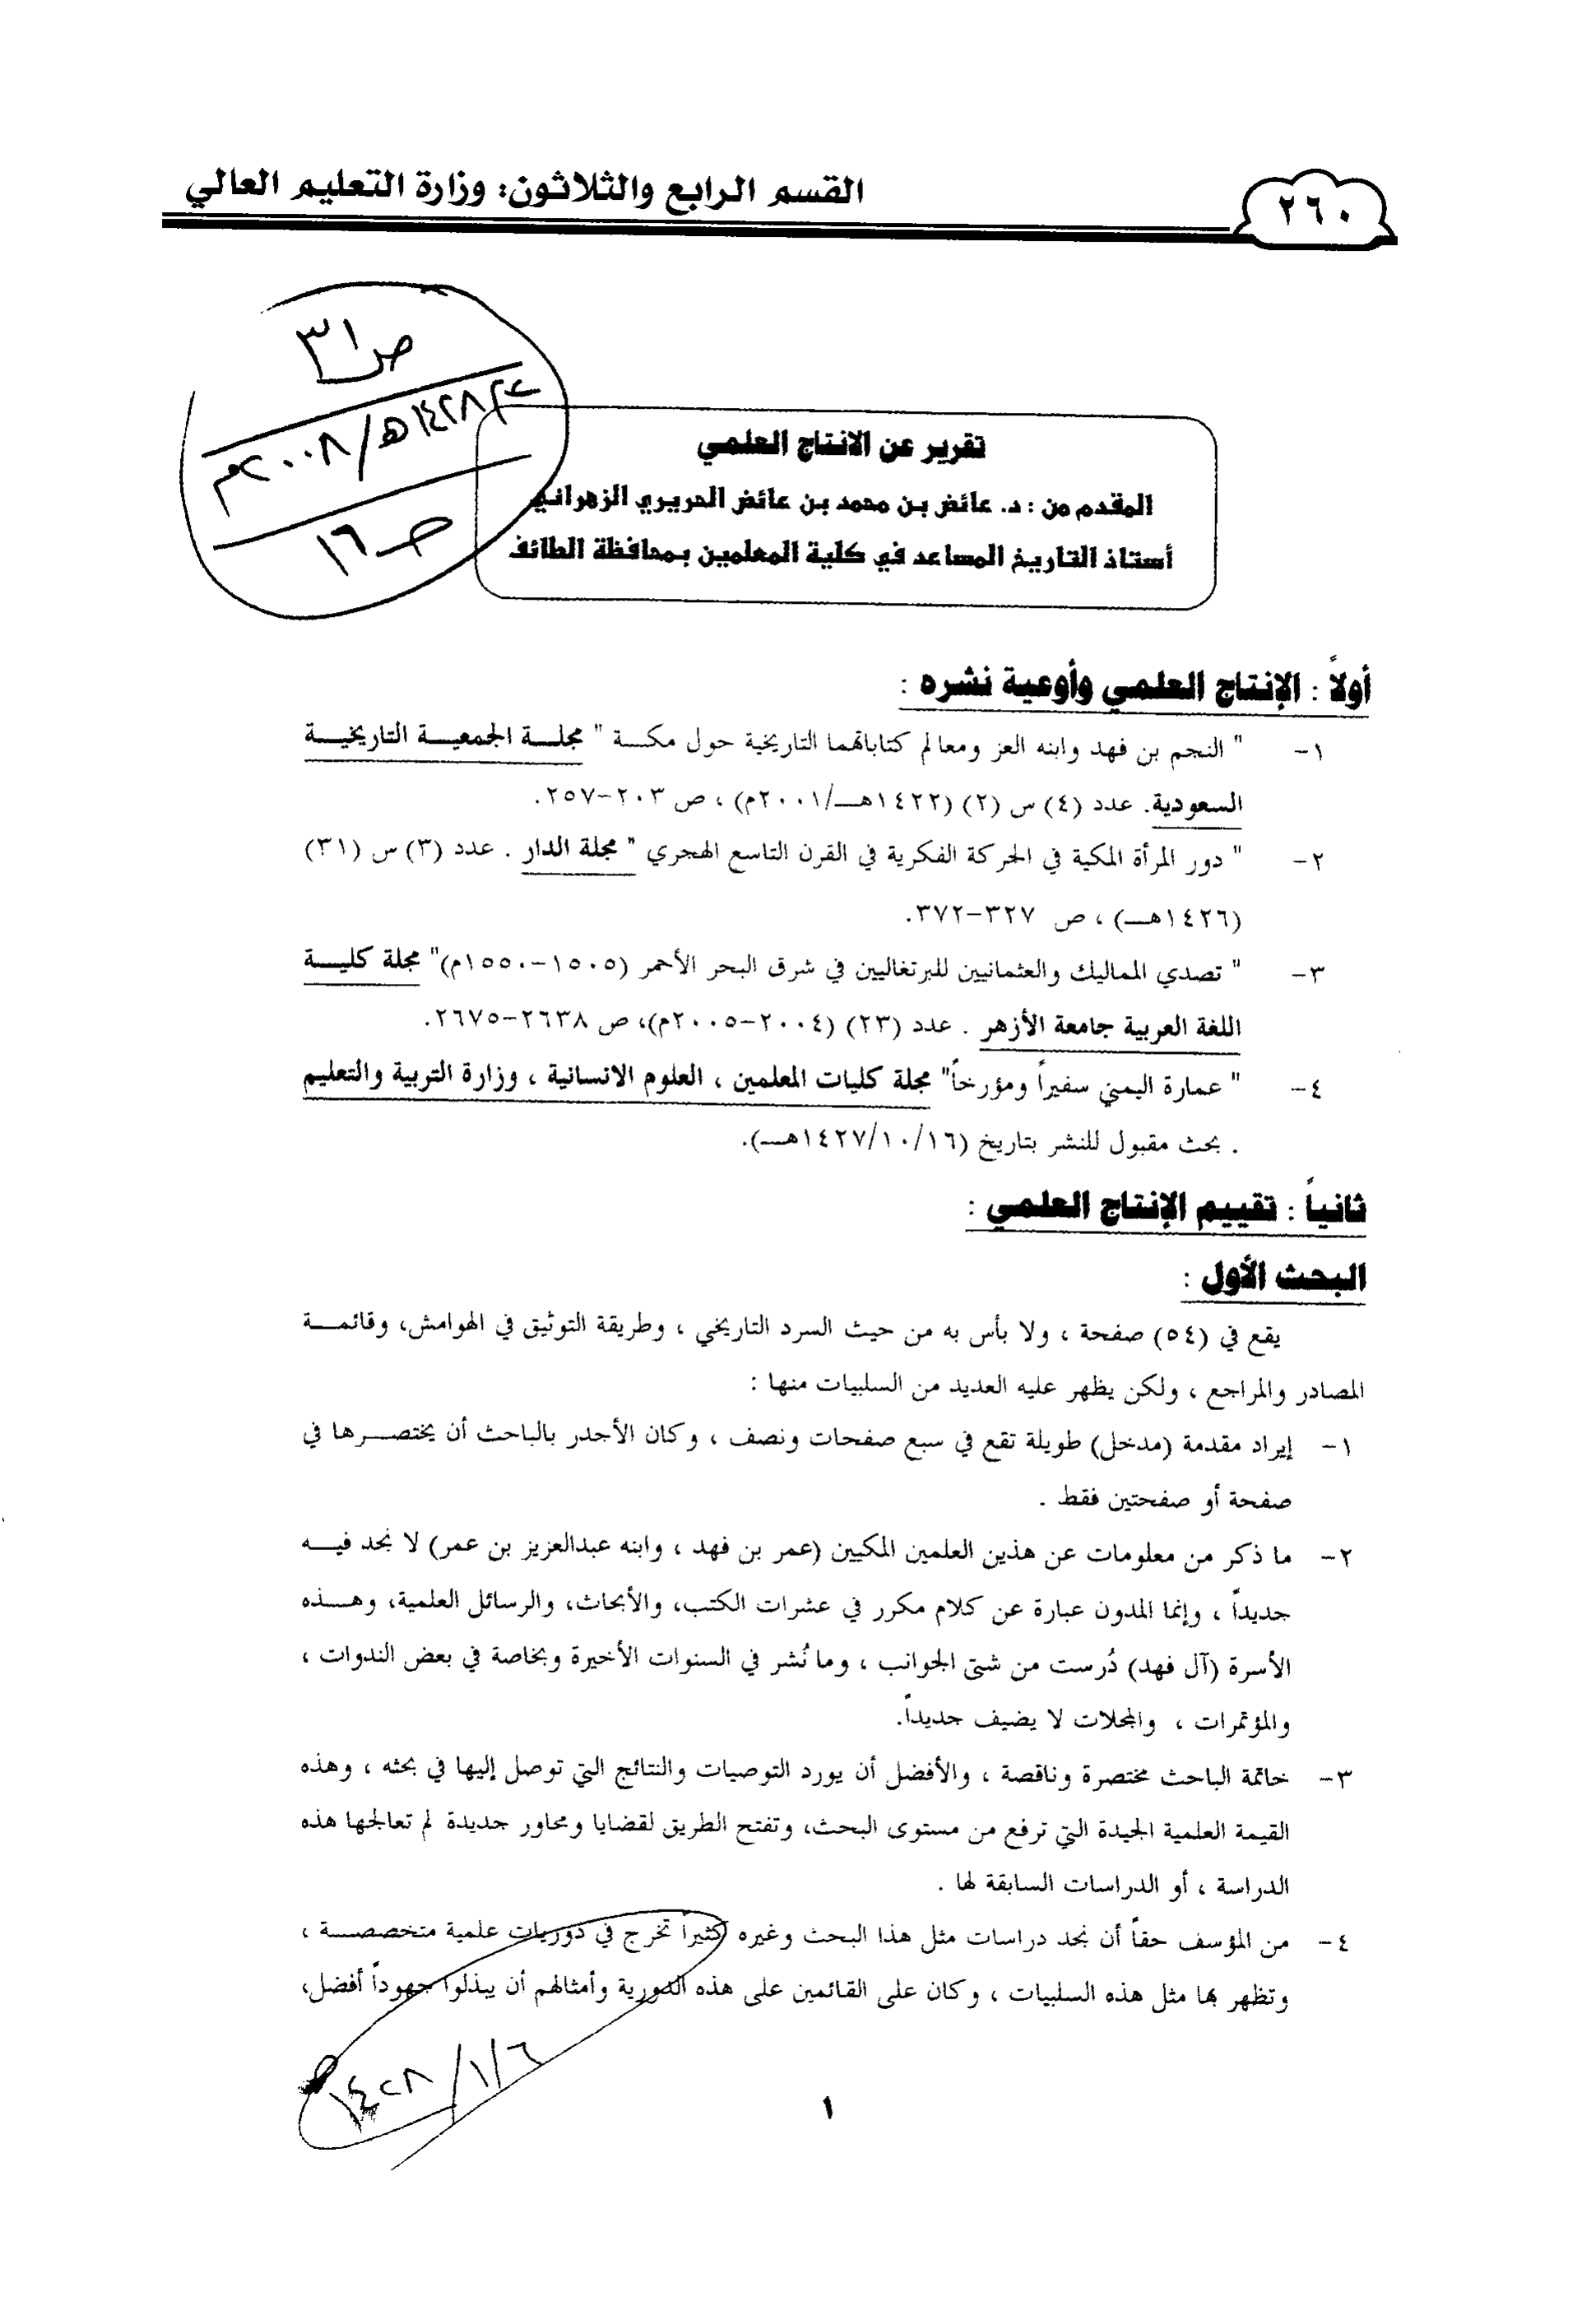 القسم الرابع والثلاثون: وزارة التعليم العالي
٢٦٠
ص٣١
١٤٢٨هـ/٢٠٠٨م
ص١٦
تقرير عن الانتاج العلمي
المقدم من : د. عائض بن محمد بن عائض الحريري الزهراني
أستاذ التاريخ المساعد في كلية المعلمين بمحافظة الطائف
أولاً : الإنتاج العلمي وأوعية نشره :
١- " النجم بن فهد وابنه العز ومعالم كتاباتهما التاريخية حول مكة " مجلة الجمعية التاريخية
السعودية. عدد (٤) س (٢) (١٤٢٢هـ/٢٠٠١م) ، ص ٢٠٣-٢٥٧.
٢- " دور المرأة المكية في الحركة الفكرية في القرن التاسع الهجري " مجلة الدار . عدد (٣) س (٣١)
(١٤٢٦هـ) ، ص ٣٢٧-٣٧٢.
٣- " تصدي المماليك والعثمانيين للبرتغاليين في شرق البحر الأحمر (١٥٠٥-١٥٥٠م)" مجلة كلية
اللغة العربية جامعة الأزهر . عدد (٢٣) (٢٠٠٤-٢٠٠٥م)، ص ٢٦٣٨-٢٦٧٥.
٤- " عمارة اليمني سفيراً ومؤرخاً" مجلة كليات المعلمين ، العلوم الانسانية ، وزارة التربية والتعليم
. بحث مقبول للنشر بتاريخ (١٤٢٧/١٠/١٦هـ).
ثانياً : تقييم الإنتاج العلمي :
البحث الأول :
يقع في (٥٤) صفحة ، ولا بأس به من حيث السرد التاريخي ، وطريقة التوثيق في الهوامش، وقائمة
المصادر والمراجع ، ولكن يظهر عليه العديد من السلبيات منها :
١- إيراد مقدمة (مدخل) طويلة تقع في سبع صفحات ونصف ، وكان الأجدر بالباحث أن يختصرها في
صفحة أو صفحتين فقط .
٢- ما ذكر من معلومات عن هذين العلمين المكيين (عمر بن فهد ، وابنه عبدالعزيز بن عمر) لا نجد فيه
جديداً ، وإنما المدون عبارة عن كلام مكرر في عشرات الكتب، والأبحاث، والرسائل العلمية، وهذه
الأسرة (آل فهد) دُرست من شتى الجوانب ، وما نُشر في السنوات الأخيرة وبخاصة في بعض الندوات ،
والمؤتمرات ، والمجلات لا يضيف جديداً.
٣- خاتمة الباحث مختصرة وناقصة ، والأفضل أن يورد التوصيات والنتائج التي توصل إليها في بحثه ، وهذه
القيمة العلمية الجيدة التي ترفع من مستوى البحث، وتفتح الطريق لقضايا ومحاور جديدة لم تعالجها هذه
الدراسة ، أو الدراسات السابقة لها .
٤- من المؤسف حقاً أن نجد دراسات مثل هذا البحث وغيره كثيراً تخرج في دوريات علمية متخصصة ،
وتظهر بها مثل هذه السلبيات ، وكان على القائمين على هذه الدورية وأمثالهم أن يبذلوا جهوداً أفضل،
١٤٢٨/١/٦
١